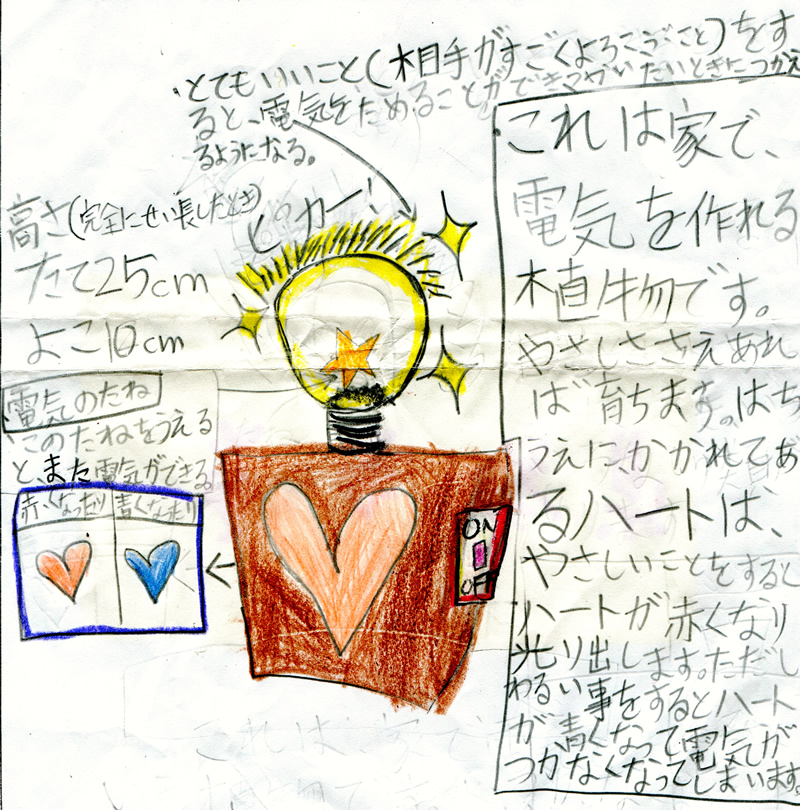 とてもいいこと(相手がすごくよろこうごこと)をす
ると、電気をためることができマやいたいときにつかえ
るようになる。
ピカー!
高さ(完全にせい長したとき)
たて25cm
よこ10cm
電気のたね
このたねをうえる
と、また電気ができる。
赤くなったり
青くなったり
ON
OFF
これは家で、
電気を作れる
植物です。
やさしささえあれ
ば育ちます。はち
うえに、かかれてあ
るハートは、
やさしいことをすると
ハートが赤くなり
光り出します。ただし
わるい事をするとハート
が、青くなって電気が
つかなくなってしまいます。